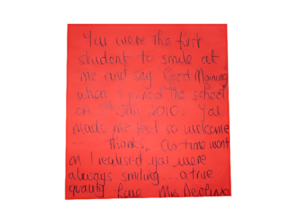 You were the first
student to smile at
me and say Good Morning
when I joined the school
on July 2010. You
made me feel so welcome
Thanks. As time went
on I realised you were
always smiling... a true
quality Love Mrs